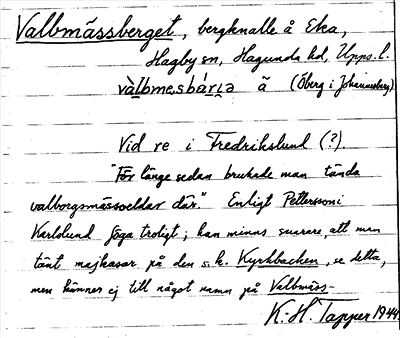 Valbmässberget, bergknalle å Eka,
Hagby sn, Hagunda hd, Upps. l.
vàlbmesbár̨ja ä (Öberg i Johannesberg)
Vid re i Fredrikslund (?)
"För länge sedan brukade man tända
valborgsmässoeldar där." Enligt Pettersson i
Karlslund föga troligt; han minns snarare, att man
tänt majkasar på den s.k. Kyrkbacken, se detta,
men känner ej till något namn på Valbmäss-
K.-H. Tapper 1944